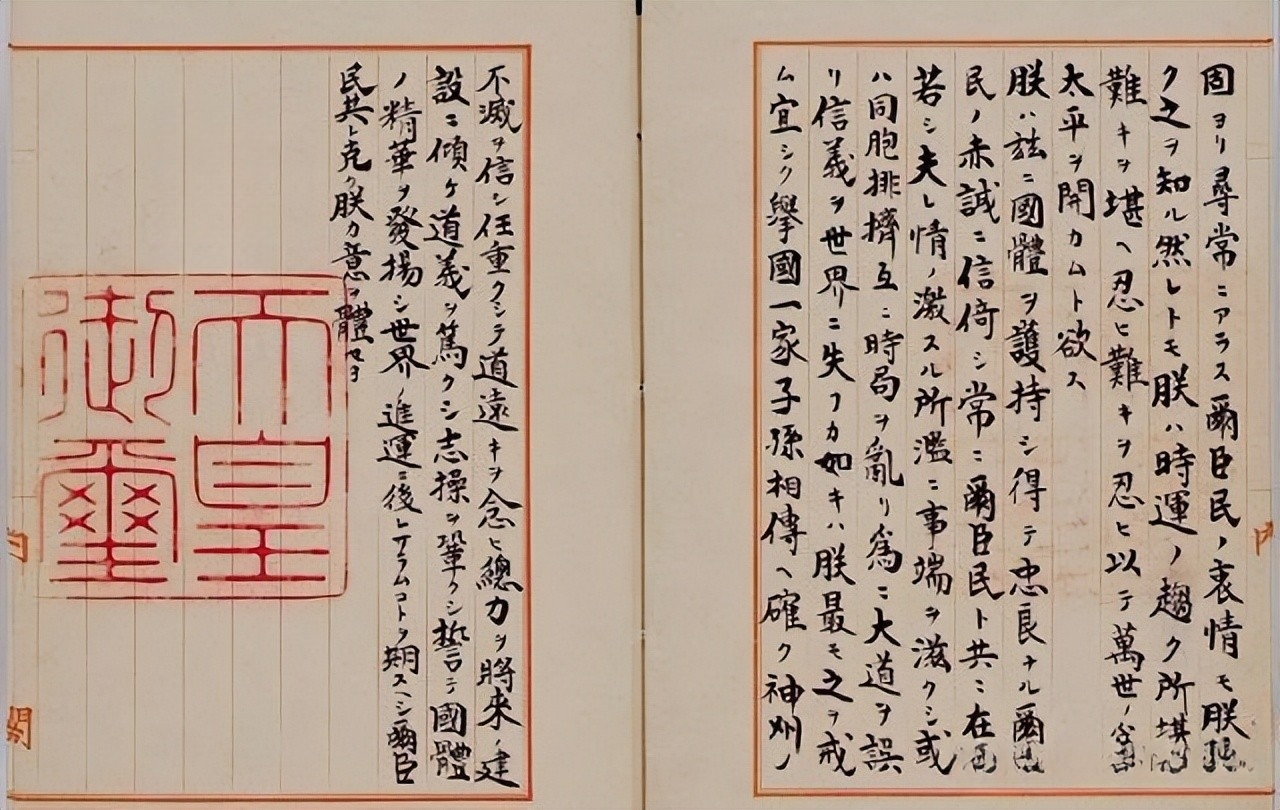 固ヨリ尋常ニアラス爾臣民ノ衷情モ朕
ク之ヲ知ル然レトモ朕ハ時運ノ趨ク所堪
難キヲ堪ヘ忍ヒ難キヲ忍ヒ以テ萬世ノ
太平ヲ開カムト欲ス
朕ハ茲ニ國體ヲ護持シ得テ忠良ナル爾
民ノ赤誠ニ信倚シ常ニ爾臣民ト共ニ在
若シ夫レ情ノ激スル所濫ニ事端ヲ滋クシ或
ハ同胞排擠互ニ時局ヲ亂リ爲ニ大道ヲ誤
リ信義ヲ世界ニ失フカ如キハ朕最モ之ヲ戒
ム宜シク擧國一家子孫相傳ヘ確ク神州ノ
不滅ヲ信シ任重クシテ道遠キヲ念ヒ總力ヲ將來ノ建
設ニ傾ケ道義ヲ篤クシ志操ヲ鞏クシ誓テ國體
ノ精華ヲ發揚シ世界ノ進運ニ後レサラムコトヲ期スヘシ爾臣
民其レ克ク朕カ意ヲ體セヨ
天皇
御璽
閣